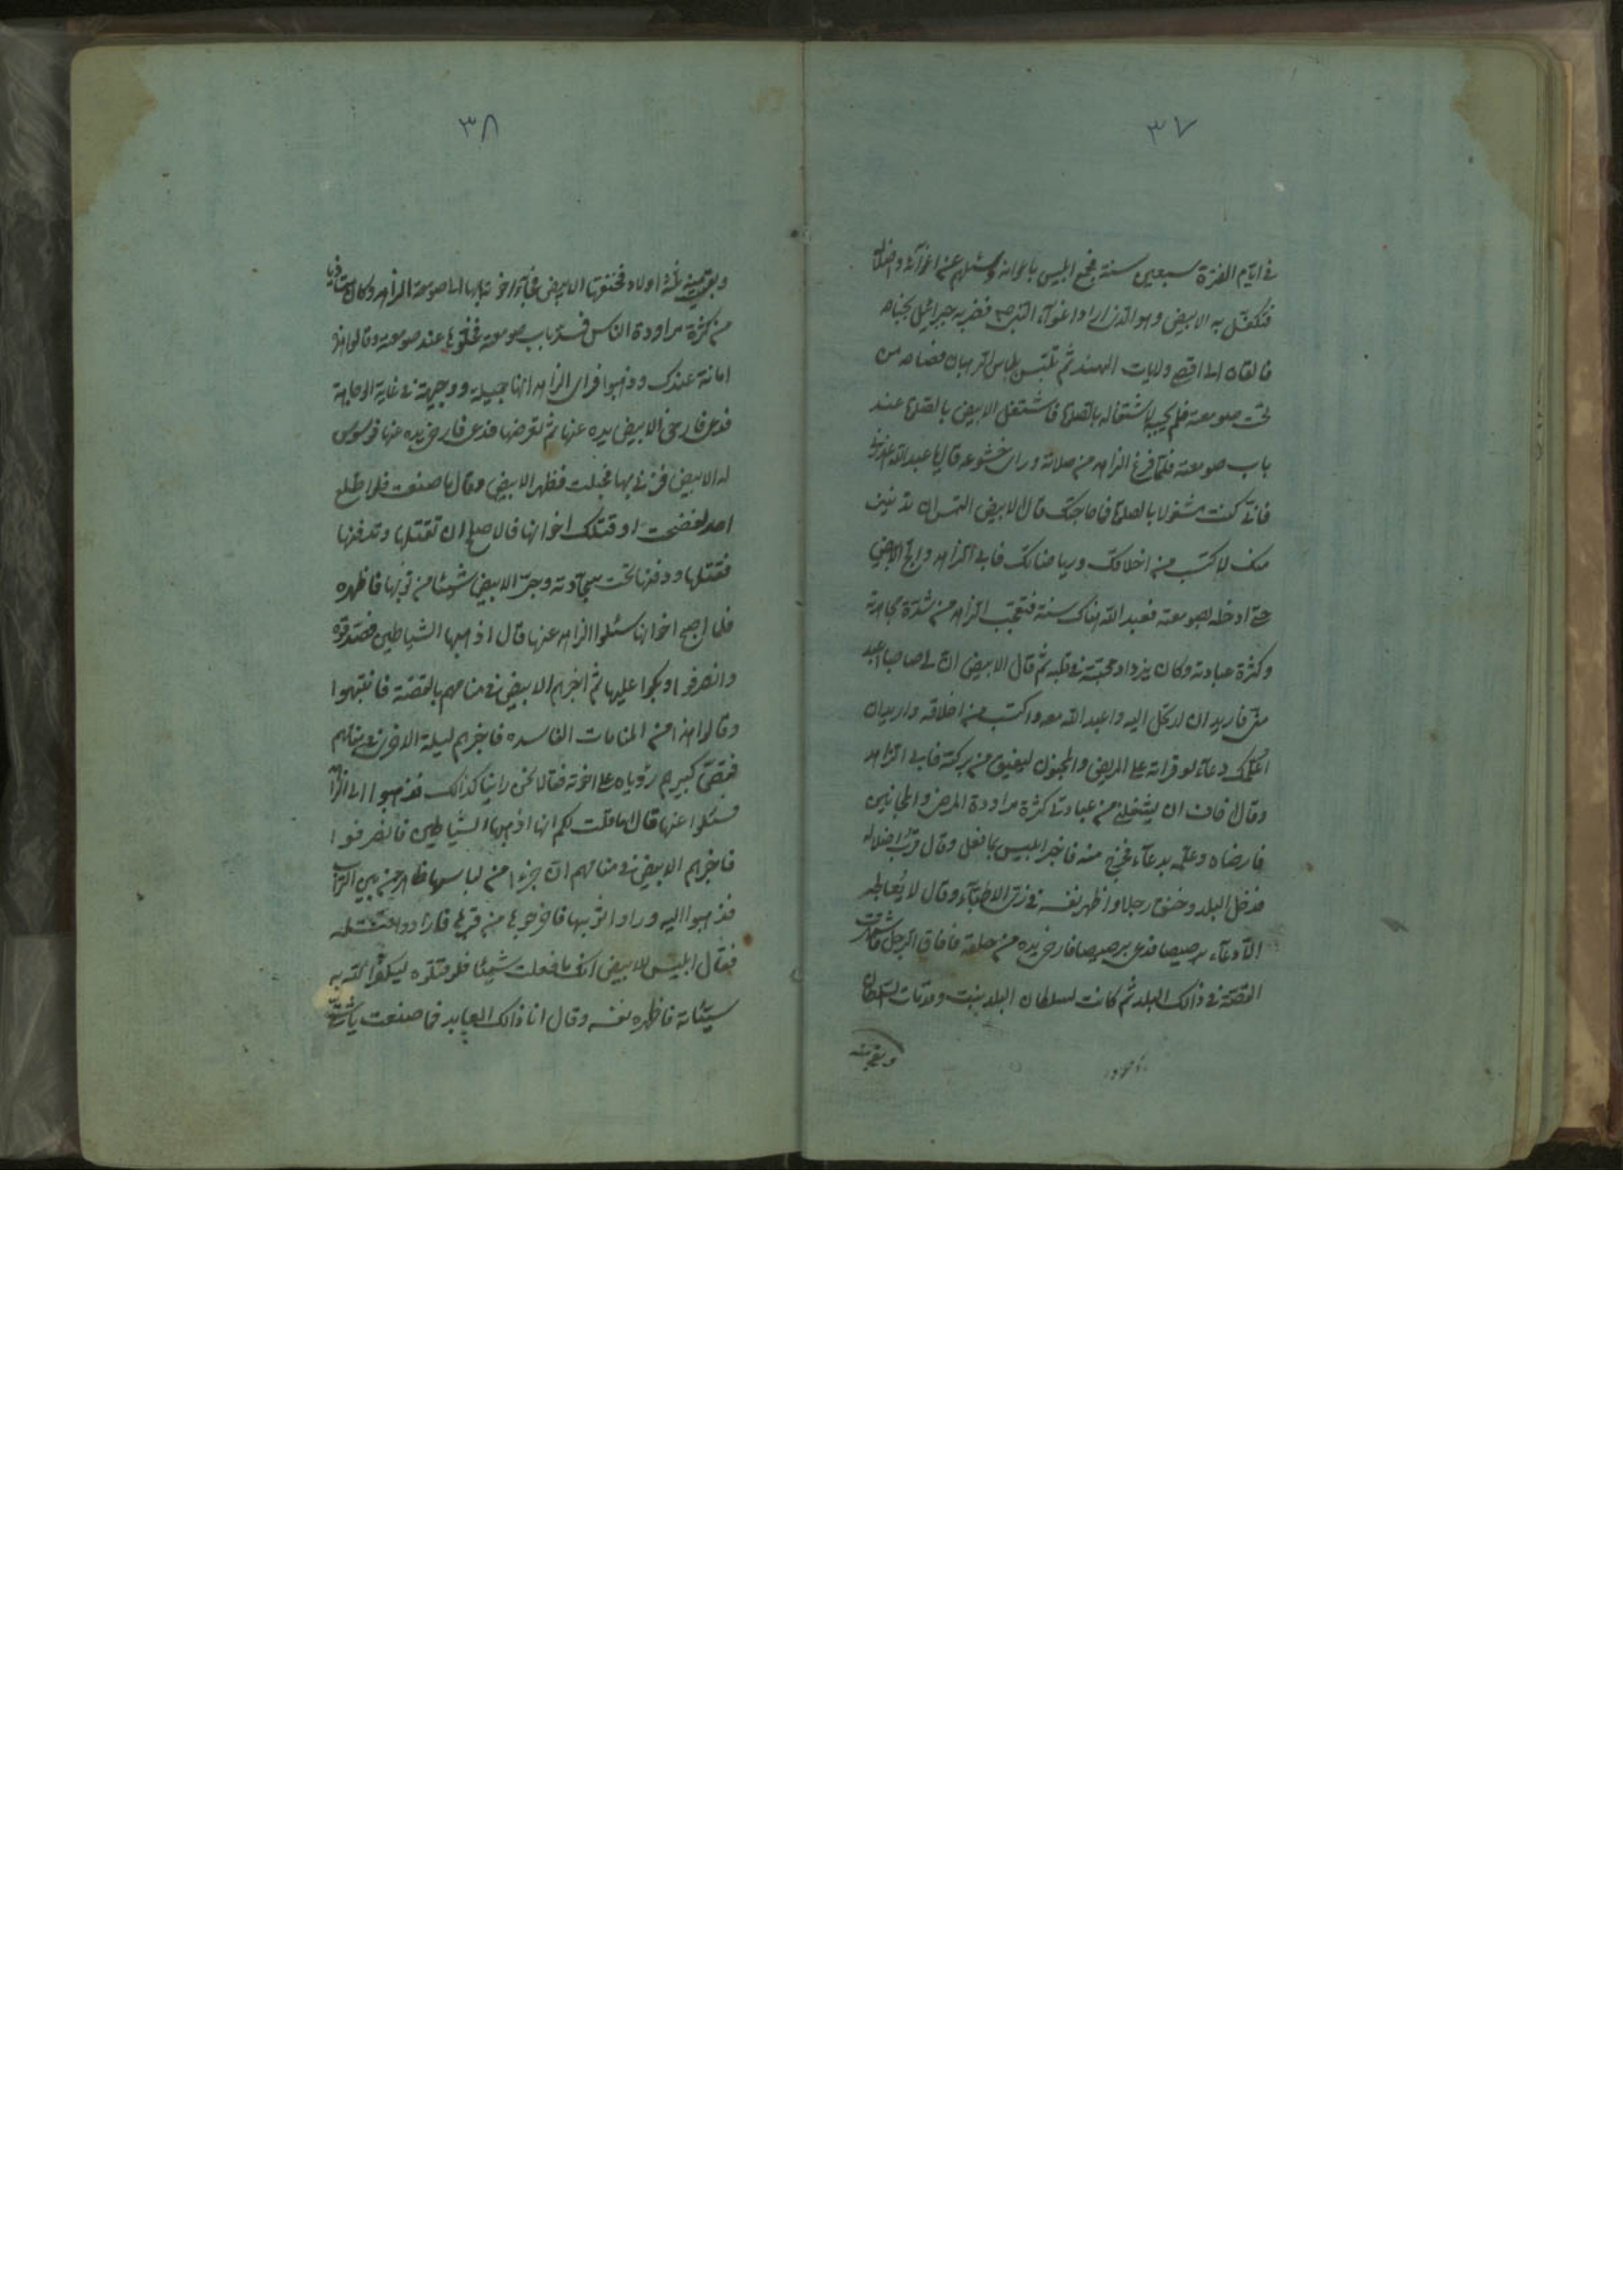 ٣٧
في ايّام الفترة سبعين سنة فجمع ابليس باعوانه وسئلهم عن اغوآئه واضلاله
فتكفّل به الابيض وهو الذي اراد اغوآء النبي ص فضربه جبرائيل بجناحه
فالقاه الى اقصى ولايات الهند ثم تلبّس بلباس الرهبان فصاح من
تحت صومعته فلم يجبه لاشتغاله بالصلوة فاشتغل الابيض بالصلوة عند
باب صومعته فلمّا فرغ الزاهد من صلاته وراى خشوعه قال يا عبد الله اعذرني
فانّي كنت مشغولا بالصلوة فما حاجتك قال الابيض التمس ان
منك لاكتسب من اخلاقك ورياضاتك فابى الزاهد والح الابيض
حتى ادخله بصومعته فعبد الله هناك سنة فتعجّب الزاهد من شدّة مجاهدته
وكثرة عبادته وكان يزداد محبّته في قلبه ثم قال الابيض ان لي صاحبا اعبد
منّي فاريد ان ارتحل اليه واعبد الله معه واكتسب من اخلاقه واريد ان
اعلّمك دعآء لو قراته على المريض والمجنون ليفيق من بركته فابى الزاهد
وقال اخاف ان يشغلني من عبادتي كثرة مراودة المرضى والمجانين
فارضاه وعلّمه بدعآء فخرج منه فاخبر ابليس بما فعل وقال قرب اضلاله
فدخل البلد وخنق رجلا واظهر نفسه في زيّ الاطبّآء وقال لا يعالجه
الّا دعآء برصيصا فدعى برصيصا فارخى يده من حلقه فافاق الرجل فاشتهرت
القصّة في ذالك البلد ثم كانت لسلطان البلد بنت وقد مات السلطان
وبقي منه
٣٨
وبقي منه ثلثة اولاد فخنقها الابيض فجآء اخوتها بها الى صومعة الزاهد وكان متاذيا
من كثرة مراودة الناس فسدّ باب صومعته فخلّوها عند صومعته وقالوا هذه
امانة عندك وذهبوا فراى الزاهد انها جميلة ووجيهة في غاية الوجاهة
فدعى فارخى الابيض يده عنها ثم تعرضها فدعى فارخى يده عنها فوسوس
له الابيض فزنى بها فحبلت فظهر الابيض وقال ما صنعت فلو اطلع
احد لفضحت او قتلك اخوانها فالاصلح ان تقتلها وتدفنها
فقتلها ودفنها تحت سجّادته وجرّ الابيض شيئا من ثوبها فاظهره
فلما اصبح اخوانها سئلوا الزاهد عنها قال اذهبها الشياطين فصدقوه
وانصرفوا وبكوا عليها ثم اخبرهم الابيض في منامهم بالقصّة فانتبهوا
وقالوا هذا من المنامات الفاسده فاخبرهم ليلة الاخرى في منامهم
فقصّ كبيرهم رؤياه على اخوته فقالا نحن راينا كذالك فذهبوا الى الزاهد
فسئلوا عنها قال اما قلت لكم انها اذهبها الشياطين فانصرفوا
فاخبرهم الابيض في منامهم ان جزءا من لباسها ظاهر من بين التراب
فذهبوا اليه وراوا ثوبها فاخرجوها من قبرها فارادوا قتله
فقال ابليس للابيض انك ما فعلت شيئا فلو قتلوه ليكفّر الله به
سيّئاته فاظهره نفسه وقال انا ذالك العابد فما صنعت يا شقيّ